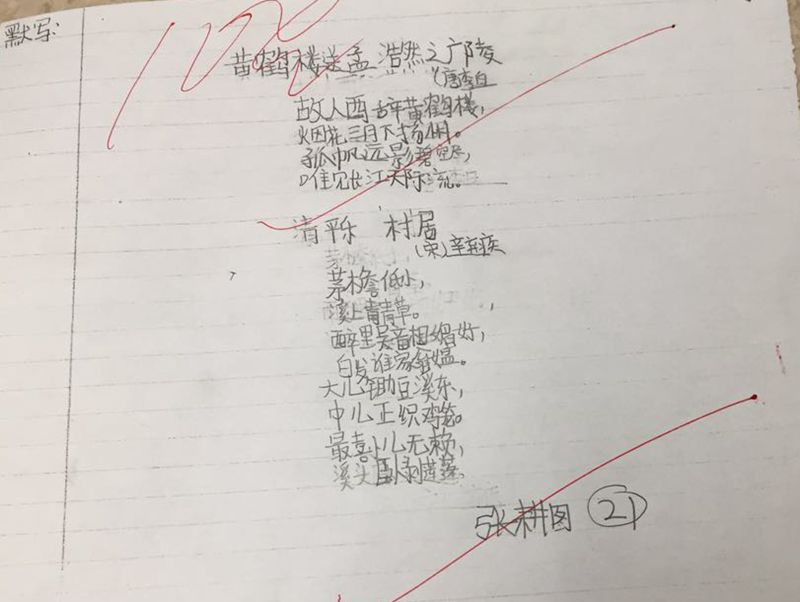 默写:
100
黄鹤楼送孟浩然之广陵
(唐)李白
故人西辞黄鹤楼,
烟花三月下扬州。
孤帆远影碧空尽,
唯见长江天际流。
清平乐 村居
(宋)辛弃疾
茅檐低小,
溪上青青草。
醉里吴音相媚好,
白发谁家翁媪。
大儿锄豆溪东,
中儿正织鸡笼。
最喜小儿无赖,
溪头卧剥莲蓬。
张耕图 21